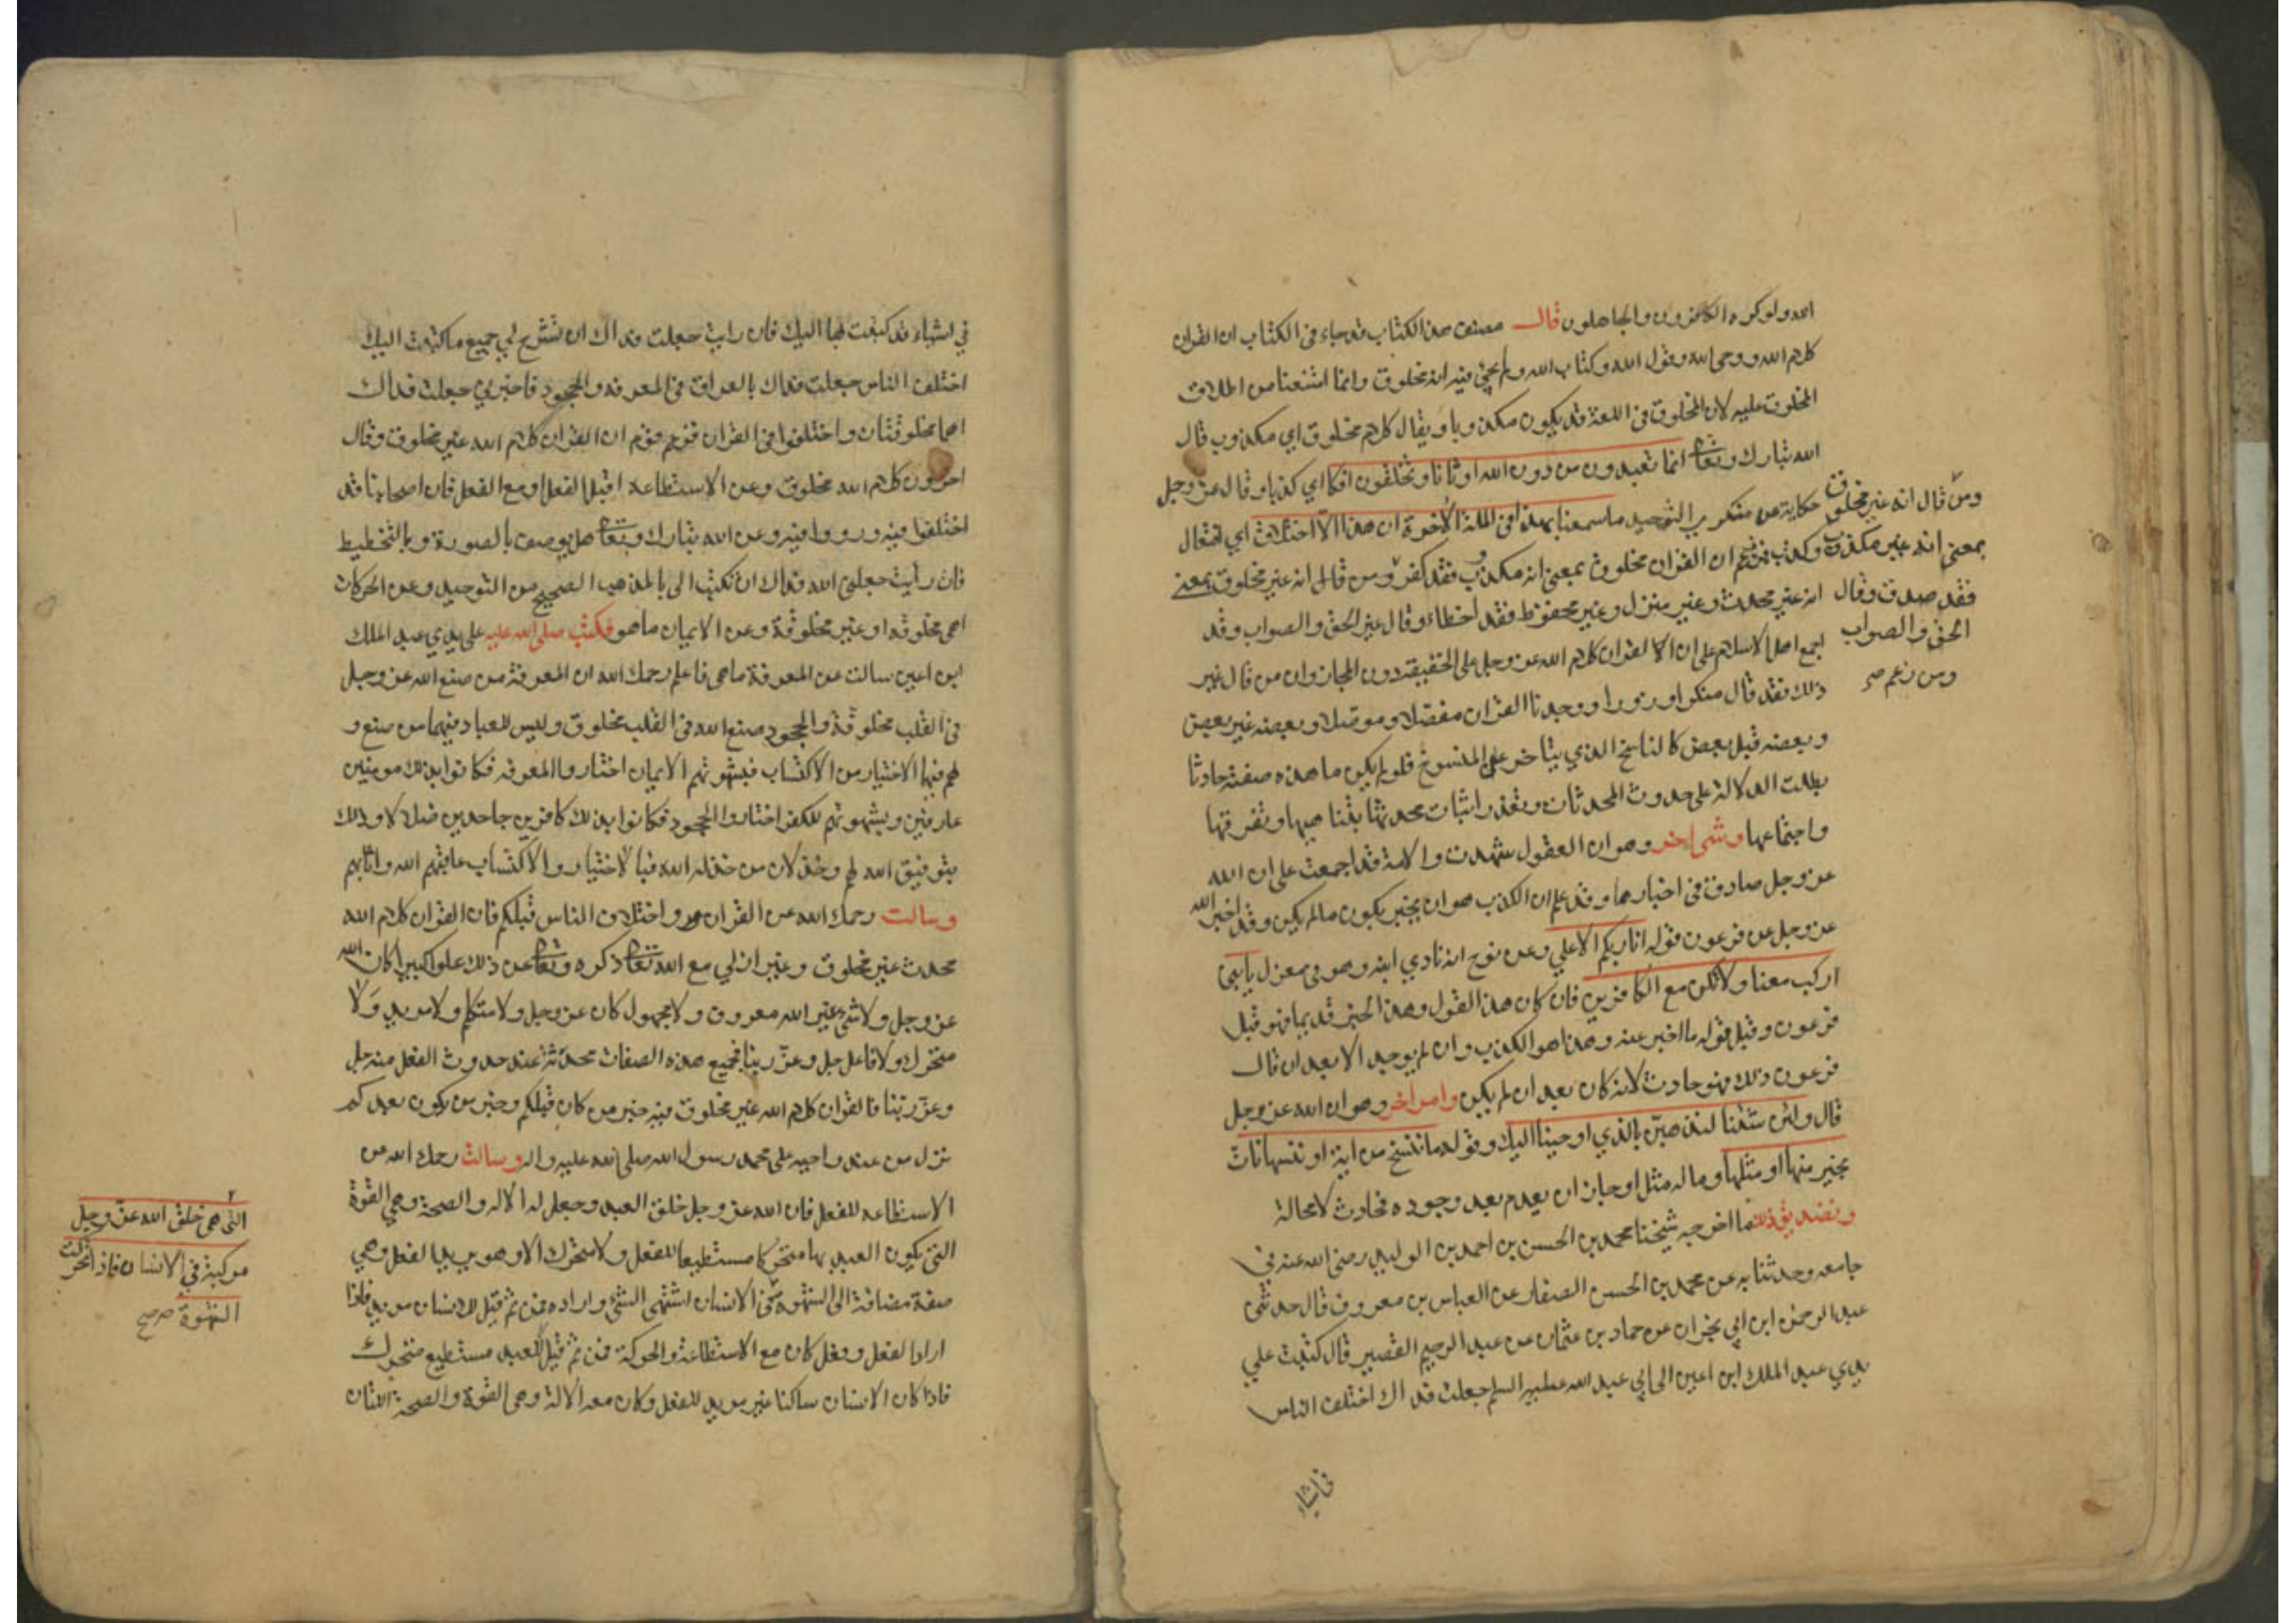 الله ولو كره الكافرون والجاهلون قال مصنف هذا الكتاب قد جاء في الكتاب ان القران
كلام الله ووحى الله وقول الله وكتاب الله ولم يجئ فيه انه مخلوق وانما امتنعنا من اطلاق
المخلوق عليه لان المخلوق في اللغة قد يكون مكذوبا ويقال كلام مخلوق اي مكذوب قال
الله تبارك وتعالى انما تعبدون من دون الله اوثانا وتخلقون افكا اي كذبا وقال عز وجل
حكاية عن منكري التوحيد ما سمعنا بهذا في الملة الآخرة ان هذا الا اختلاق اي افتعال
وكذب فمن زعم ان القران مخلوق بمعنى انه مكذوب فقد كفر ومن قال انه غير مخلوق بمعنى
انه غير محدث وغير منزل وغير محفوظ فقد اخطاء وقال غير الحق والصواب وقد
اجمع اهل الاسلام على ان الا لقران كلام الله عز وجل على الحقيقة دون المجاز وان من قال غير
ذلك فقد قال منكرا وزورا ووجدنا القران مفصلا وموصلا وبعضه غير بعض
وبعضه قبل بعض كالناسخ الذي يتاخر على المنسوخ فلو لم يكن ما هذه صفته حادثا
بطلت الدلالة على حدوث المحدثات وتعذر اثبات محدثها بتناهيها وتفرقها
واجتماعها وشئ اخر وهو ان العقول شهدت والامة قد اجمعت على ان الله
عز وجل صادق في اخباره وقد علم ان الكذب هو ان يخبر بكون ما لم يكن وقد اخبر الله
عز وجل عن فرعون قوله انا ربكم الاعلي وعن نوح انه نادي ابنه وهو في معزل يا بني
اركب معنا ولا تكن مع الكافرين فان كان هذا القول وهذا الخبر قديما فهو قبل
فرعون وقبل قوله ما اخبر عنه وهذا هو الكذب وان لم يوجد الا بعد ان قال
فرعون ذلك فهو حادث لانه كان بعد ان لم يكن وامر اخر وهو ان الله عز وجل
قال ولئن شئنا لنذهبن بالذي اوحينا اليك وقوله ما ننسخ من اية او ننسها نات
بخير منها او مثلها وماله مثل او جاز ان يعدم بعد وجوده فحادث لا محالة
وتصديق ذلك ما اخرجه شيخنا محمد بن الحسن بن احمد بن الوليد رضى الله عنه في
جامعه وحدثنا به عن محمد بن الحسن الصفار عن العباس بن معروف قال حدثنى
عبد الرحمن ابن ابي نجران عن حماد بن عثمان عن عبد الرحيم القصير قال كتبت علي
يدي عبد الملك ابن اعين الى ابي عبد الله عليه السلم جعلت فداك اختلف الناس
في اشياء
ومن قال انه غير مخلوق
بمعنى انه غير مكذوب
فقد صدق وقال
الحق والصواب
ومن زعم صح
في اشياء قد كتبت بها اليك فان رايت جعلت فداك ان تشرح لي جميع ما كتبت اليك
اختلف الناس جعلت فداك بالعراق في المعرفة والجحود فاخبرني جعلت فداك
اهما مخلوقتان واختلفوا في القران فزعم قوم ان القران كلام الله غير مخلوق وقال
اخرون كلام الله مخلوق وعن الاستطاعة اقبل الفعل او مع الفعل فان اصحابنا قد
اختلفوا فيه ورووا فيه وعن الله تبارك وتعالى هل يوصف بالصورة وبالتخطيط
فان رايت جعلنى الله فداك ان تكتب الى بالمذهب الصحيح من التوحيد وعن الحركات
اهى مخلوقه او غير مخلوقة وعن الايمان ما هو فكتب صلى الله عليه على يدي عبد الملك
ابن اعين سالت عن المعرفة ما هى فاعلم رحمك الله ان المعرفة من صنع الله عز وجل
في القلب مخلوقة والجحود صنع الله في القلب مخلوق وليس للعباد فيهما من صنع و
لهم فيها الاختيار من الاكتساب فبشهوتهم الايمان اختاروا المعرفه فكانوا بذلك مومنين
عارفين وبشهوتهم للكفر اختاروا الجحود فكانوا بذلك كافرين جاحدين ضلالا وذلك
بتوفيق الله لهم وخذلان من خذله الله فبالاختيار والاكتساب عاقبهم الله واثابهم
وسالت رحمك الله عن القران واختلاف الناس قبلكم فان القران كلام الله
محدث غير مخلوق وغير ازلي مع الله تعالى ذكره وتعالى عن ذلك علوا كبيرا كان الله
عز وجل ولا شئ غير الله معروف ولا مجهول كان عز وجل ولا متكلم ولا مريد ولا
متحرك ولا فاعل جل وعز ربنا فجميع هذه الصفات محدثة عند حدوث الفعل منه جل
وعز ربنا فالقران كلام الله غير مخلوق فيه خبر من كان قبلكم وخبر من يكون بعدكم
نزل من عند واحيه على محمد رسول الله صلى الله عليه واله وسالت رحمك الله عن
الاستطاعه للفعل فان الله عز وجل خلق العبد وجعل له الاله والصحة وهي القوة
التى يكون العبد بها متحركا مستطيعا للفعل ولا متحرك الا وهو يريد الفعل وهي
صفة مضافة الى الشهوة في الانسان اشتهى الشئ واراده فمن ثم قيل للانسان مريد فاذا
اراد الفعل وفعل كان مع الاستطاعة والحركة فمن ثم قيل للعبد مستطيع متحرك
فاذا كان الانسان ساكنا غير مريد للفعل وكان معه الالة وهى القوة والصحة اللتان
التى هى خلق الله عز وجل
مركبة في الانسان فاذا تحركت
الشهوة صح